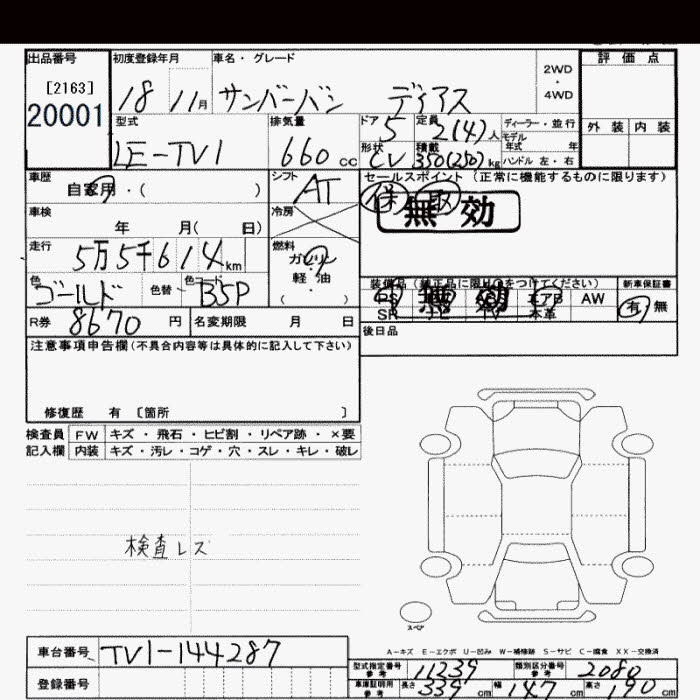 出品番号 初度登録年月 車名・グレード 評価点
[2163]
20001 18 11月 サンバーバン ディアス 2WD・4WD
型式 排気量 ドア 定員 ディーラー・並行 外装 内装
LE-TV1 660cc 5 2(4)人 モデル年式 年
形状 積載 ハンドル 左・右
CV 350(250)kg
車歴 シフト セールスポイント (正常に機能するものに限ります)
自家用・( ) AT 保 取
無効
車検 冷房
年 月( 日)
走行 燃料
5万5千614km ガソリン
軽・油
( )
色 色替 色コード 装備品(純正品に限り○をつけてください) 新車保証書
ゴールド B5P PS エアB AW 有 無
SR ナビ TV 本革
無効
R券 8670円 名変期限 月 日 後日品
注意事項申告欄(不具合内容等は具体的に記入して下さい)
修復歴 有 〔箇所 〕
検査員 FW キズ・飛石・ヒビ割・リペア跡・×要
記入欄 内装 キズ・汚レ・コゲ・穴・スレ・キレ・破レ
検査レス
スペア
A-キズ E-エクボ U-凹み W-補修跡 S-サビ C-腐食 XX-交換済
車台番号 TV1-144287 型式指定番号 参考 11239 類別区分番号 参考 2080
登録番号 車庫証明用 参考 長さ 339cm 幅 147cm 高さ 190cm